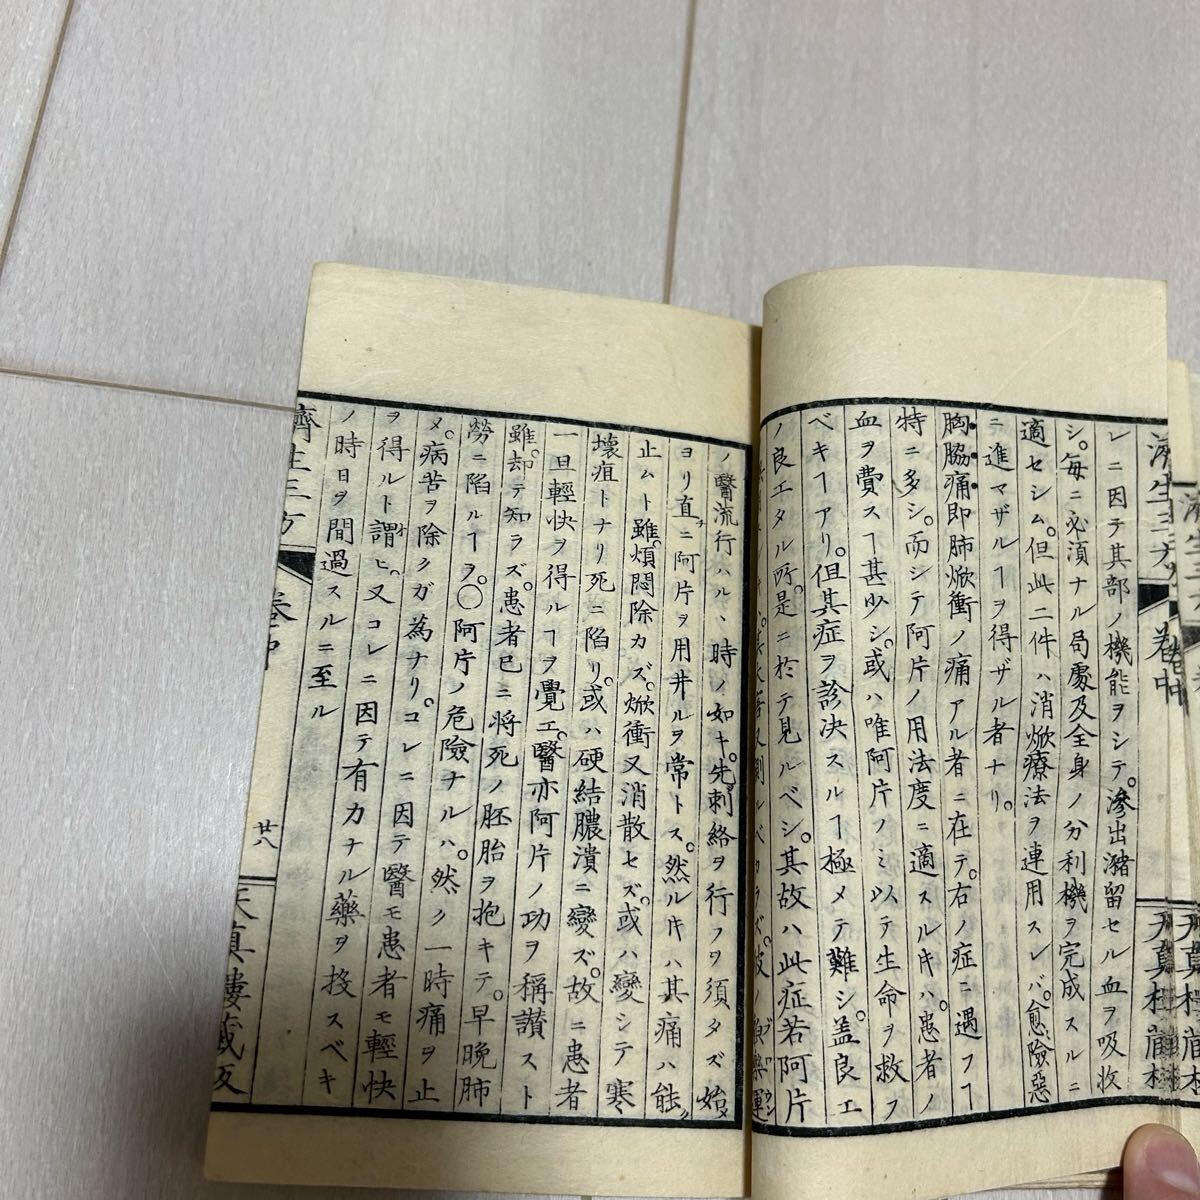 濟生三方 卷中
天真樓藏板
レニ因テ其部ノ機能ヲシテ。滲出瀦留セル血ヲ吸收
シ。每ニ必須ナル局處及全身ノ分利機ヲ完成スルニ
適セシム。但此二件ハ消焮療法ヲ連用スレバ。愈險惡
ニ進マザルヿヲ得ザル者ナリ。
胸脇痛即肺焮衝ノ痛アル者ニ在テ。右ノ症ニ遇フヿ
特ニ多シ。而シテ阿片ノ用法度ニ適スルキハ。患者ノ
血ヲ費スヿ甚少シ。或ハ唯阿片ノミ以テ生命ヲ救フ
ベキヿアリ。但其症ヲ診決スルヿ極メテ難シ。盖良工
ノ良工タル所。是ニ於テ見ルベシ。其故ハ此症若阿片
ノ醫流行ハル、時ノ如キ。先刺絡ヲ行フヲ須タズ始
ヨリ直ニ阿片ヲ用井ルヲ常トス。然ルキハ其痛ハ能
止ムト雖。煩悶除カズ。焮衝又消散セズ。或ハ變シテ寒
壞疽トナリ死ニ陷リ。或ハ硬結膿潰ニ變ズ。故ニ患者
一旦輕快ヲ得ルヿヲ覺エ。醫亦阿片ノ功ヲ稱讃スト
雖。却テ知ラズ。患者已ニ將死ノ胚胎ヲ抱キテ。早晚肺
勞ニ陷ルヿヲ。○阿片ノ危險ナルハ。然ク一時痛ヲ止
メ。病苦ヲ除クガ為ナリ。コレニ因テ醫モ患者モ輕快
ヲ得ルト謂ヒ。又コレニ因テ有力ナル藥ヲ投スベキ
ノ時日ヲ間過スルニ至ル
濟生三方 卷中 廿八 天真樓藏板